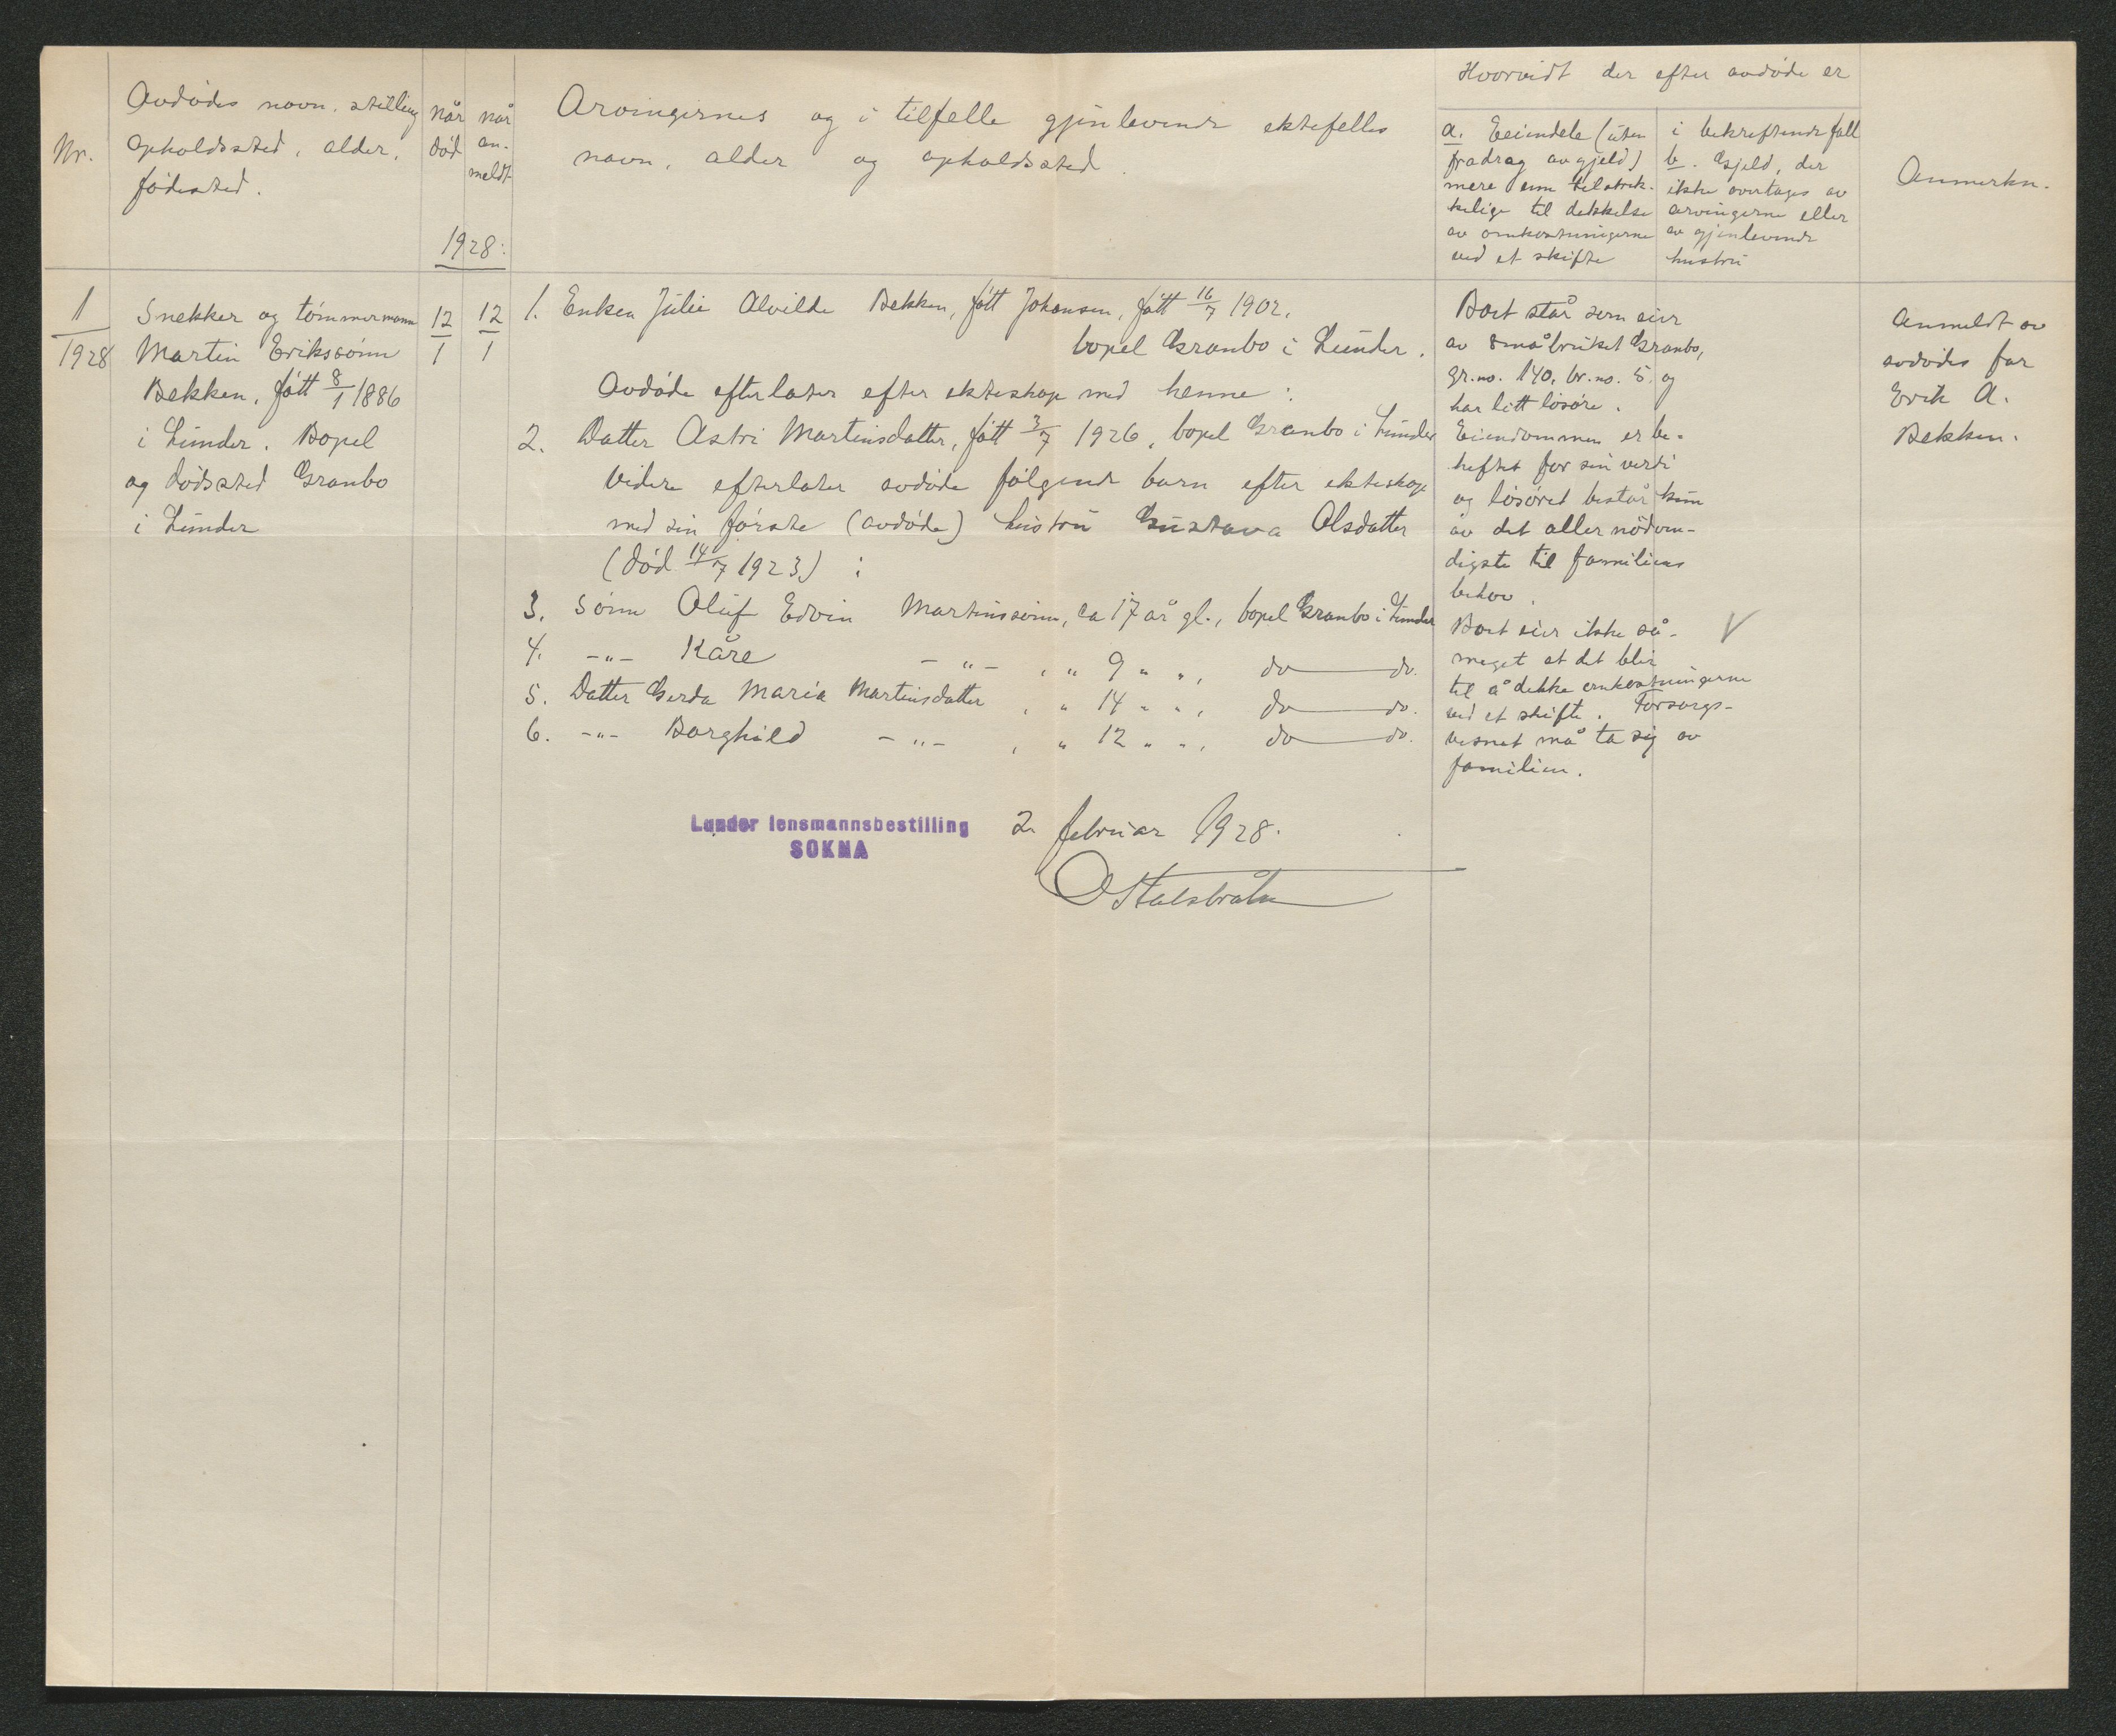 Nr.
Avdødes navn, stilling
opholdssted, alder,
fødested.
når
død
når
an-
meldt
1928:
Arvingernes og i tilfelle gjenlevende ektefelles
navn, alder og opholdssted.
Hvorvidt der efter avdøde er
a. Eeiendele (uten
fradrag av gjeld)
mere enn tilstrek-
kelige til dekkelse
av omkostningerne
ved et skifte
i bekreftende fall
b. Gjeld, der
ikke overtages av
arvingerne eller
av gjenlevende
hustru
Anmerkn.
1
1928
Snekker og tømmermann
Martin Erikssønn
Bekken, født 8/1 1886
i Lunder. Bopel
og dødssted Granbo
i Lunder
12/1
12/1
1. Enken Julie Alvilde Bekken, født Johansen, født 16/7 1902,
bopel Granbo i Lunder.
Avdøde efterlater efter ekteskap med henne:
2. Datter Astri Martinsdatter, født 3/7 1926, bopel Granbo i Lunder
Videre efterlater avdøde følgende barn efter ekteskap
med sin første (avdøde) hustru Gustava Olsdatter
(død 14/7 1923):
3. Sønn Oluf Edvin Martinssønn, ca 17 år gl., bopel Granbo i Lunder
4. -"- Kåre -"- , " 9 " ", do do.
5. Datter Gerda Maria Martinsdatter, " 14 " ", do do.
6. -"- Borghild -"- , " 12 " ", do do.
Boet står som eier
av småbruket Granbo,
gr.no. 140, br.no. 5, og
har litt løsøre.
Eiendommen er be-
heftet for sin verdi
og løsøret består kun
av det aller nødven-
digste til familiens
behov.
Boet eier ikke så-
meget at det blir
til å dekke omkostningerne
ved et skifte. Forsorgs-
vesnet må ta sig av
familien.
V
Anmeldt av
avdødes far
Erik A.
Bekken.
Lunder lensmannsbestilling
SOKNA
2 februar 1928.